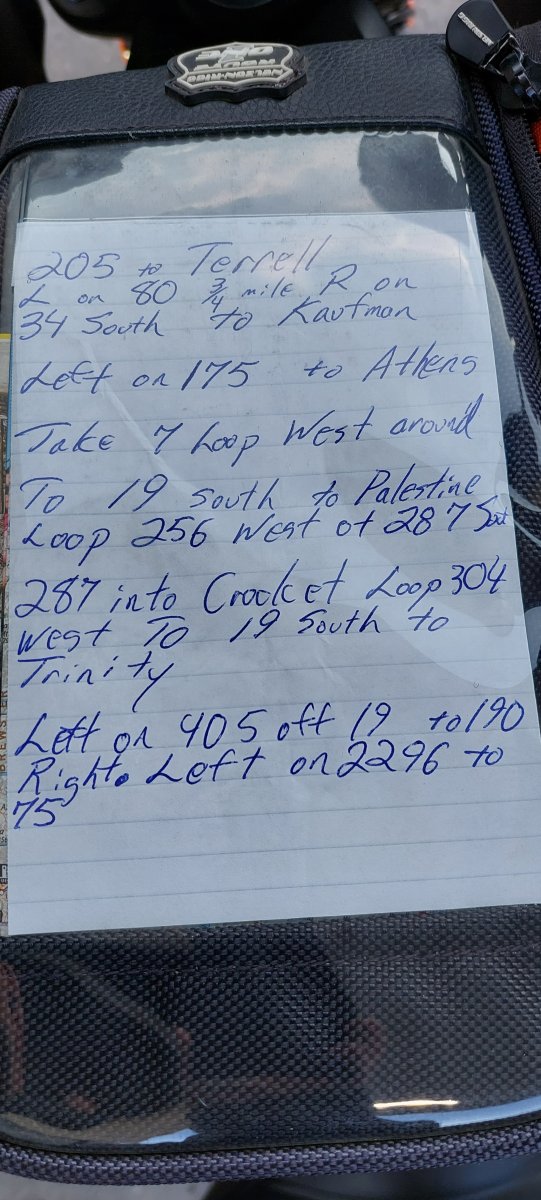 NELSON-RIGG
205 to Terrell
L on 80 3/4 mile R on
34 South to Kaufman
Left on 175 to Athens
Take 7 Loop West around
To 19 south to Palestine
Loop 256 West ot 287 Sout
287 into Crocket Loop 304
West To 19 South to
Trinity
Left on 405 off 19 to 190
Right. Left on 2296 to
75
BREWSTER